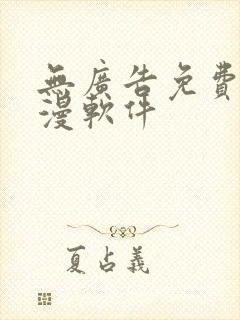 無廣告免費
漫軟件
夏占義